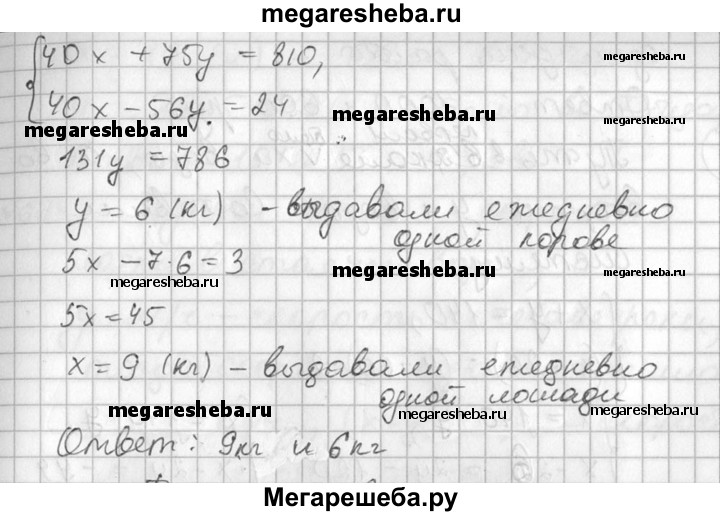 megaresheba.ru
40x + 75y = 810,
megaresheba.ru
40x - 56y = 24
megaresheba.ru megaresheba.ru
131y = 786
y = 6 (кг) - выдавали ежедневно
одной корове
5x - 7·6 = 3
megaresheba.ru megaresheba.ru
5x = 45
megaresheba.ru
x = 9 (кг) - выдавали ежедневно
одной лошади
megaresheba.ru megaresheba.ru
Ответ: 9кг и 6кг
megaresheba.ru
Мегарешеба.ру